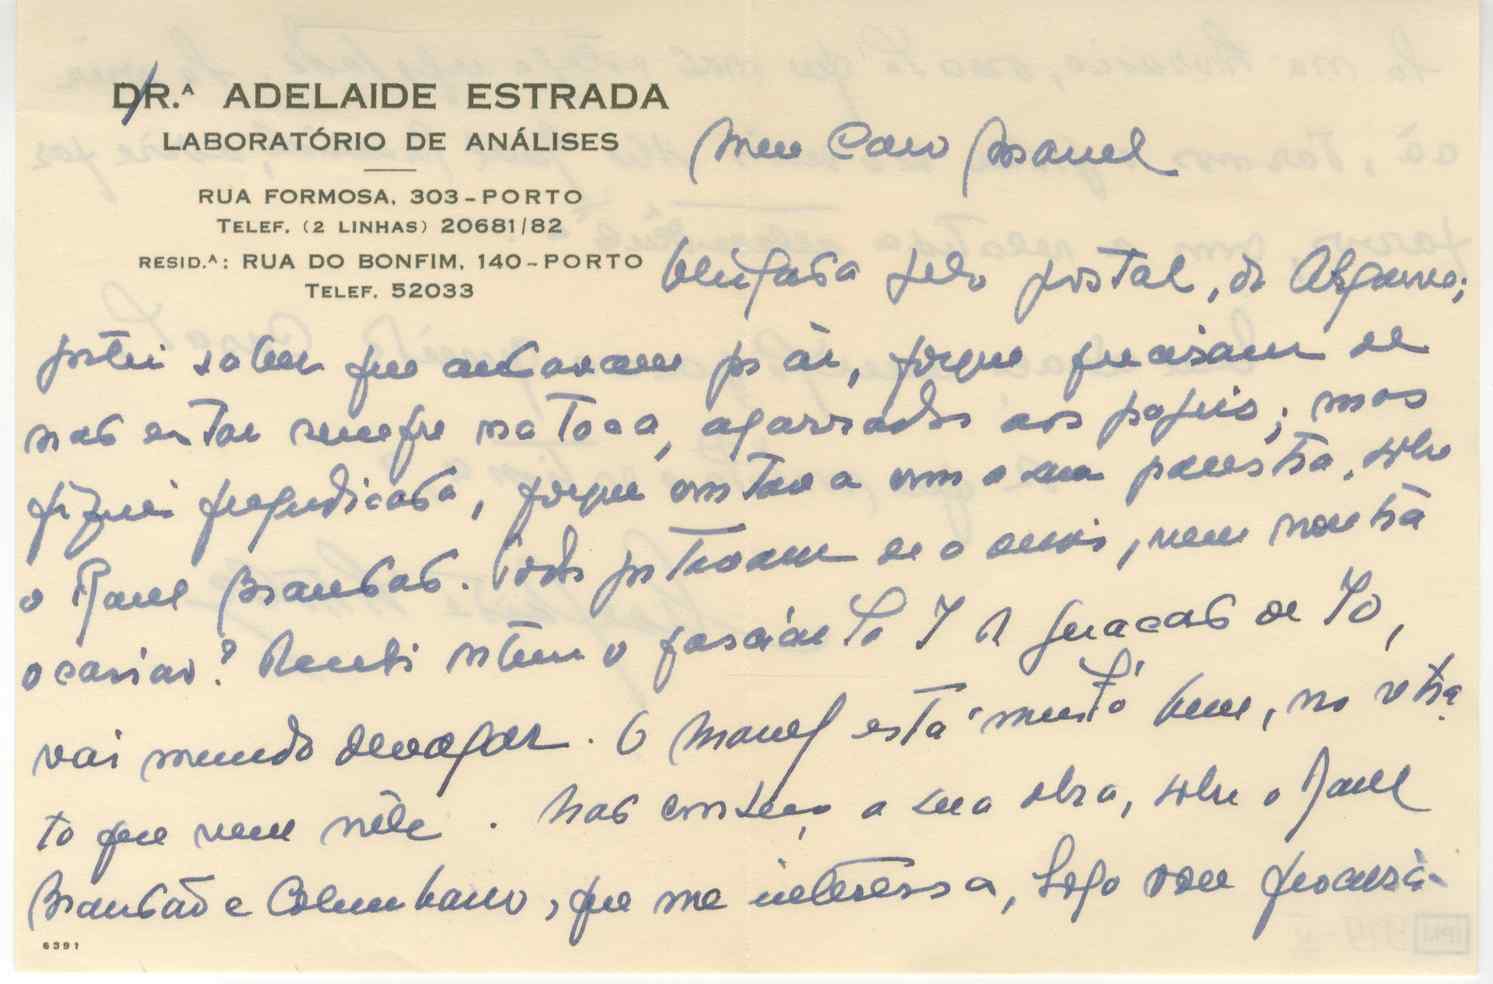 DR.ᴬ ADELAIDE ESTRADA
LABORATÓRIO DE ANÁLISES
RUA FORMOSA, 303-PORTO
TELEF. (2 LINHAS) 20681/82
RESID.ᴬ: RUA DO BONFIM, 140-PORTO
TELEF. 52033
Meu Caro Manuel
Obrigada pelo postal, do Algarve;
gostei saber que andaram por aí, porque precisam de
não estar sempre na toca, agarrados aos papeis; mas
fiquei prejudicada, porque contava com a sua palestra, sobre
o Raul Brandão. Todos gostavam de o ouvir, nem noutra
ocasião? Recebi o fascículo 7 de
vai muito devagar. O Manuel está muito bem, no
to que vem nele. Não conheço a sua obra, sobre o Raul
Brandão e Columbano, que me interessa, logo vou procurá-
6391